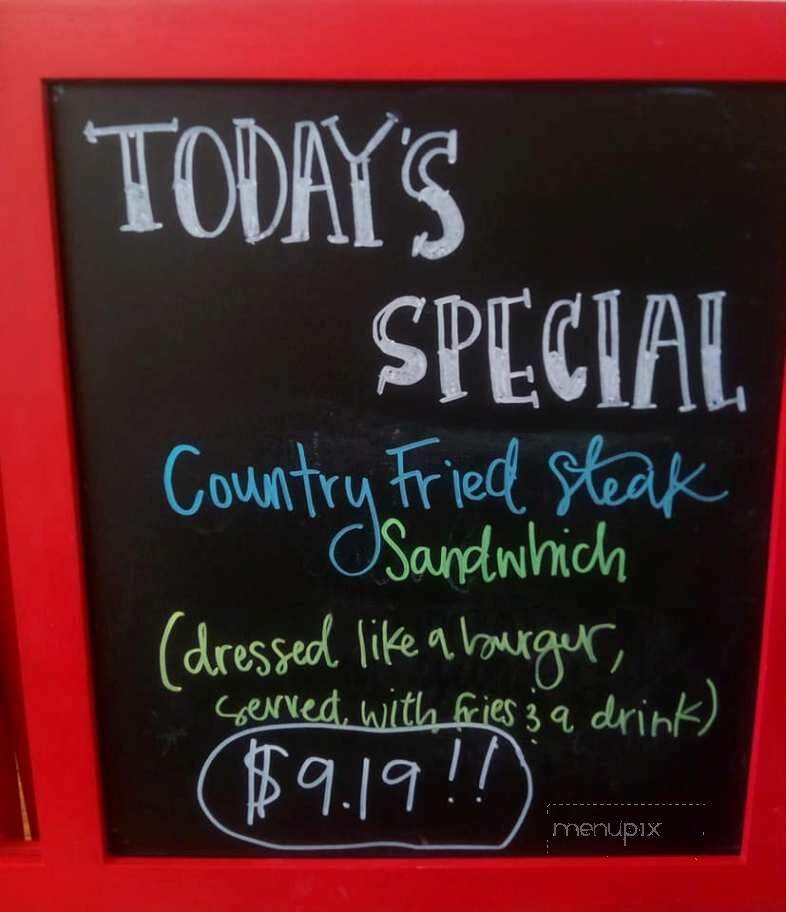 TODAY'S
SPECIAL
Country Fried Steak
Sandwhich
(dressed like a burger,
served with fries & a drink)
$9.19!!
menupix